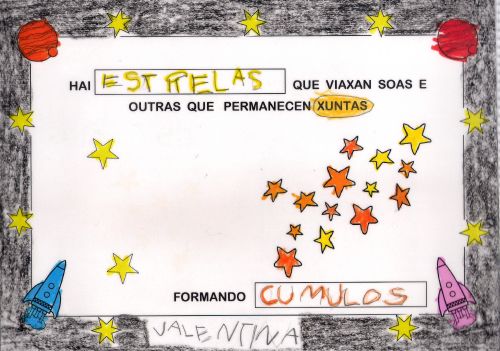 HAI ESTRELAS QUE VIAXAN SOAS E
OUTRAS QUE PERMANECEN XUNTAS
FORMANDO CUMULOS
VALENTINA